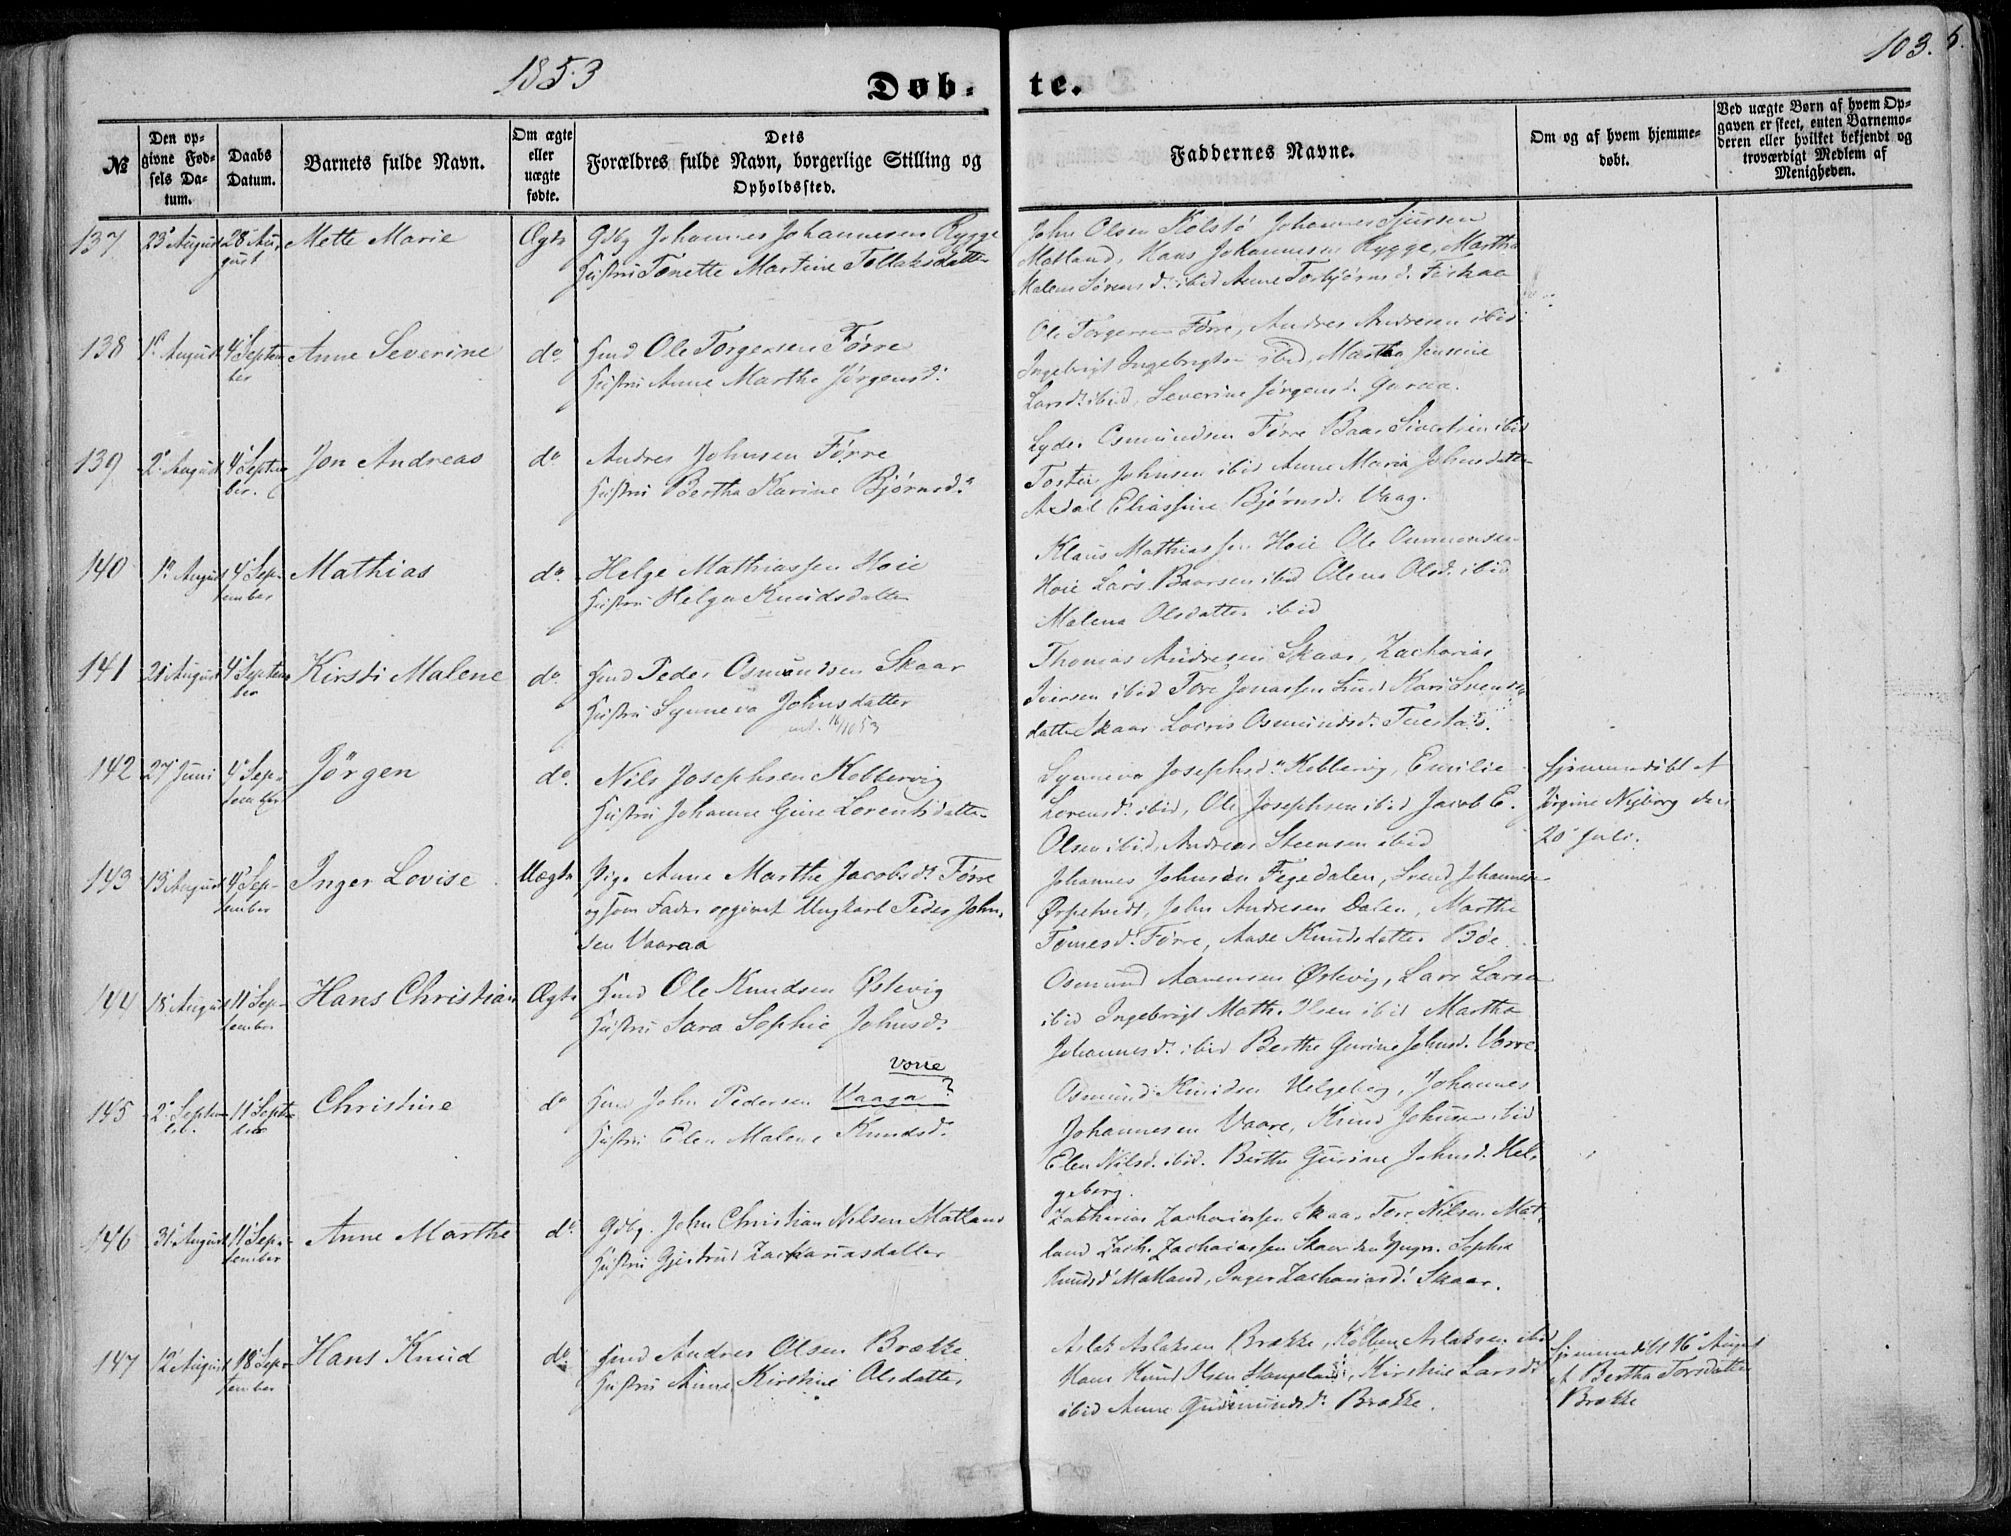 1853
103.
Døb-
te.
№
Den op-
givne Fød-
sels Da-
tum.
Daabs
Datum.
Barnets fulde Navn.
Om ægte
eller
uægte
fødte.
Dets
Forældres fulde Navn, borgerlige Stilling og
Opholdssted.
Faddernes Navne.
Om og af hvem hjemme-
døbt.
Ved uægte Børn af hvem Op-
gaven er skeet, enten Barnemo-
deren eller hvilket bekjendt og
troværdigt Medlem af
Menigheden.
137
23 August
28 Au-
gust
Mette Marie
Ægte
Gdbg Johannes Johannesen Rygge
Hustru Tonette Martine Tollaksdatter
John Olsen Kolstø Johannes Sjursen
Matland, Hans Johannesen Rygge, Martha
Malene Sørensd. ibid Anne Torbjørnsd. Fiskaa
138
1 August
4 Septem
ber
Anne Severine
do
Huusmd Ole Torgersen Førre
Hustru Anne Marthe Jørgensd.
Ole Torgersen Førre, Andres Andresen ibid
Ingebrigt Ingebrigtsen ibid, Martha Jensine
Larsd. ibid, Severine Jørgensd.
139
2 August
4 Septem
ber.
Jon Andreas
do
Andres Johnsen Førre
Hustru Bertha Karine Bjørnsd.
Lyder Osmundsen Førre Baar Sivertsen ibid
Johnsen ibid Anne Maria Johnsdatter
Eliassine Bjørnsd. Vaag.
140
1 August
4 Sep-
tember
Mathias
do.
Helge Mathiassen Høie
Hustru Helga Knudsdatter
Klaus Mathiassen Høie Ole
Høie Lars Baarsen ibid Olena Olsd. ibid
Malena Olsdatter ibid
141
21 August
4 Septem
ber
Kirsti Malene
do.
Huusmd Peder Osmundsen Skaar
Hustru Synneva Johnsdatter
16/10 53
Thomas Andresen Skaar, Zacharias
Iversen ibid Tore Jonassen Lund Kari Svends
datter Skaar Osmundsd.
142
27 Juni
4 Sep-
tember
Jörgen
do.
Nils Josephsen Kobbervig
Hustru Johanne Gine Lorentsdatter
Synneva Josephsd. Kobbervig, Emilie
Lorensd. ibid, Ole Josephsen ibid Jacob E.
Olsen ibid, Andreas Steensen ibid
Hjemmedøbt af
Jørgine Nyborg den
20 Juli.
143
13 August
4 Sep-
tember
Inger Lovise
Uægte
Pige Anne Marthe Jacobsd. Førre
og som Fader opgivet Ungkarl Peder John-
sen Vaaraa
Johannes Johnsen Fegedalen, Svend Johannesen
Ørpetvedt, John Andresen Dalen, Marthe
Tomesd. Førre, Aase Knudsdatter Bøe.
144
18 August
11 Sep-
tember
Hans Christian
Ægte
Huusmd Ole Knudsen Østevig
Hustru Sara Sophie Johnsd.
Osmund Aanensen Østevig, Lars Larsen
ibid Ingebrigt Math. Olsen ibid Martha
Johannesd. ibid Berthe Gurine Johnsd. Vorre
145
2 Septem
ber.
11 Septem
ber
Christine
do
Huusmd John Pedersen Vaaga ?
vorre
Hustru Elen Malene Knudsd.
Osmund Knudsen Helgeberg, Johannes
Johannesen Vaare, Knud Johnsen ibid
Elen Nilsd. ibid. Berthe Gurine Johnsd. Hel-
geberg.
146
31 August
11 Sep-
tember
Anne Marthe
do
Gdbg. John Christian Nilsen Matland
Hustru Gjertrud Zachariasdatter
Zacharias Zachariassen Skaar Tore Nilsen Mat-
land Zach. Zachariassen Skaar den yngre. Sophie
Knudsd. Matland, Inger Zachariasd. Skaar.
147
12 August
18 Sep-
tember
Hans Knud
do.
Huusmd Andres Olsen Brække
Hustru Anne Kirstine Olsdatter
Aslak Aslaksen Brække, Aslaksen ibid
Hans Knud Olsen Stangeland, Kirstine Larsd.
ibid Anne Gudmundsd. Brække.
Hjemmedøbt 16 August
af Bertha Torsdatter
Brække